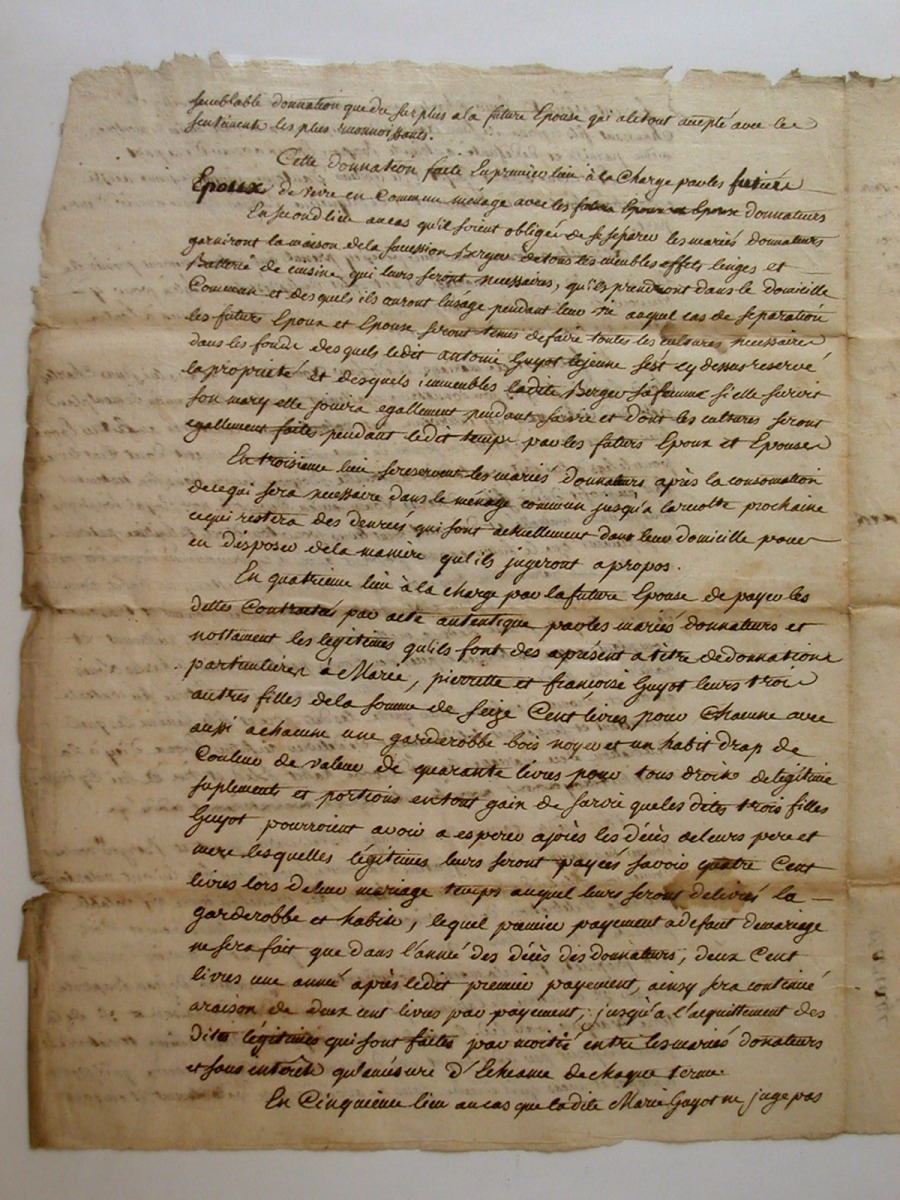 semblable donnation que du surplus a la future Epouse qui a letout accepté avec les
sentiments les plus reconnoissants.
Cette donnation faite En premier lieu à la Charge par les futures
Epoux de vivre en Commun ménage avec les future Epoux et Epoux donnateurs
En second lieu au cas qu'il soient obligée de se separer les mariés donnateurs
garniront la maison de la succession Berger de tous les meubles effets linges et
Batterie de cuisine qui leurs seront necessaires, qu'ils prendront dans le domicille
Commun et desquels ils auront lusage pendant leur vie auquel cas de separation
les futurs Epoux et Epouse seront tenus de faire toutes les cultures necessaires
dans les fonds desquels ledit antoine Guyot lejeune sest cy dessus reservé
la proprieté et desquels immeubles ladite Berger sa femme si elle survit
son mary elle jouira egallement pendant sa vie et dont les cultures seront
egallement faites pendant ledit temps par les futurs Epoux et Epouse
En troisieme lieu se reservent les mariés donnateurs après la consomation
de ce qui sera necessaire dans le ménage commun jusqu'a la recolte prochaine
ce qui restera des denrées qui sont actuellement dans leur domicille pour
en disposer de la maniere qu'ils jugeront apropos.
En quatrieme lieu à la charge par la future Epouse de payer les
dettes Contractés par acte autentique par les mariés donnateurs et
nottament les legitimes qu'ils font des apresent a titre de donnation
particuliere à Marie, pierrette et françoise Guyot leurs trois
autres filles de la somme de seize Cent livres pour Chacune avec
aussi a chacune une garderobbe bois noyer et un habit drap de
Couleur de valeur de quarante livres pour tous droits de légitime
suplements et portions en tout gain de survie que les dites trois filles
Guyot pourroient avoir a esperer après les décès de leurs pere et
mere lesquelles légitimes leurs seront payées savoir quatre Cent
livres lors de leur mariage temps auquel leurs seront delivrés la
garderobbe et habits, lequel premier payement a defaut de mariage
ne sera fait que dans l'année des décès des donnateurs, deux Cent
livres une année après ledit premier payement, ainsy sera continué
a raison de deux cent livres par payement, jusqu'a l'acquittement des
dites légitimes qui sont faites par moitié entre les mariés donateurs
et sans interêts qu'amesure d'Echeance de chaque terme.
En Cinquieme lieu au cas que ladite Marie Guyot ne juge pas